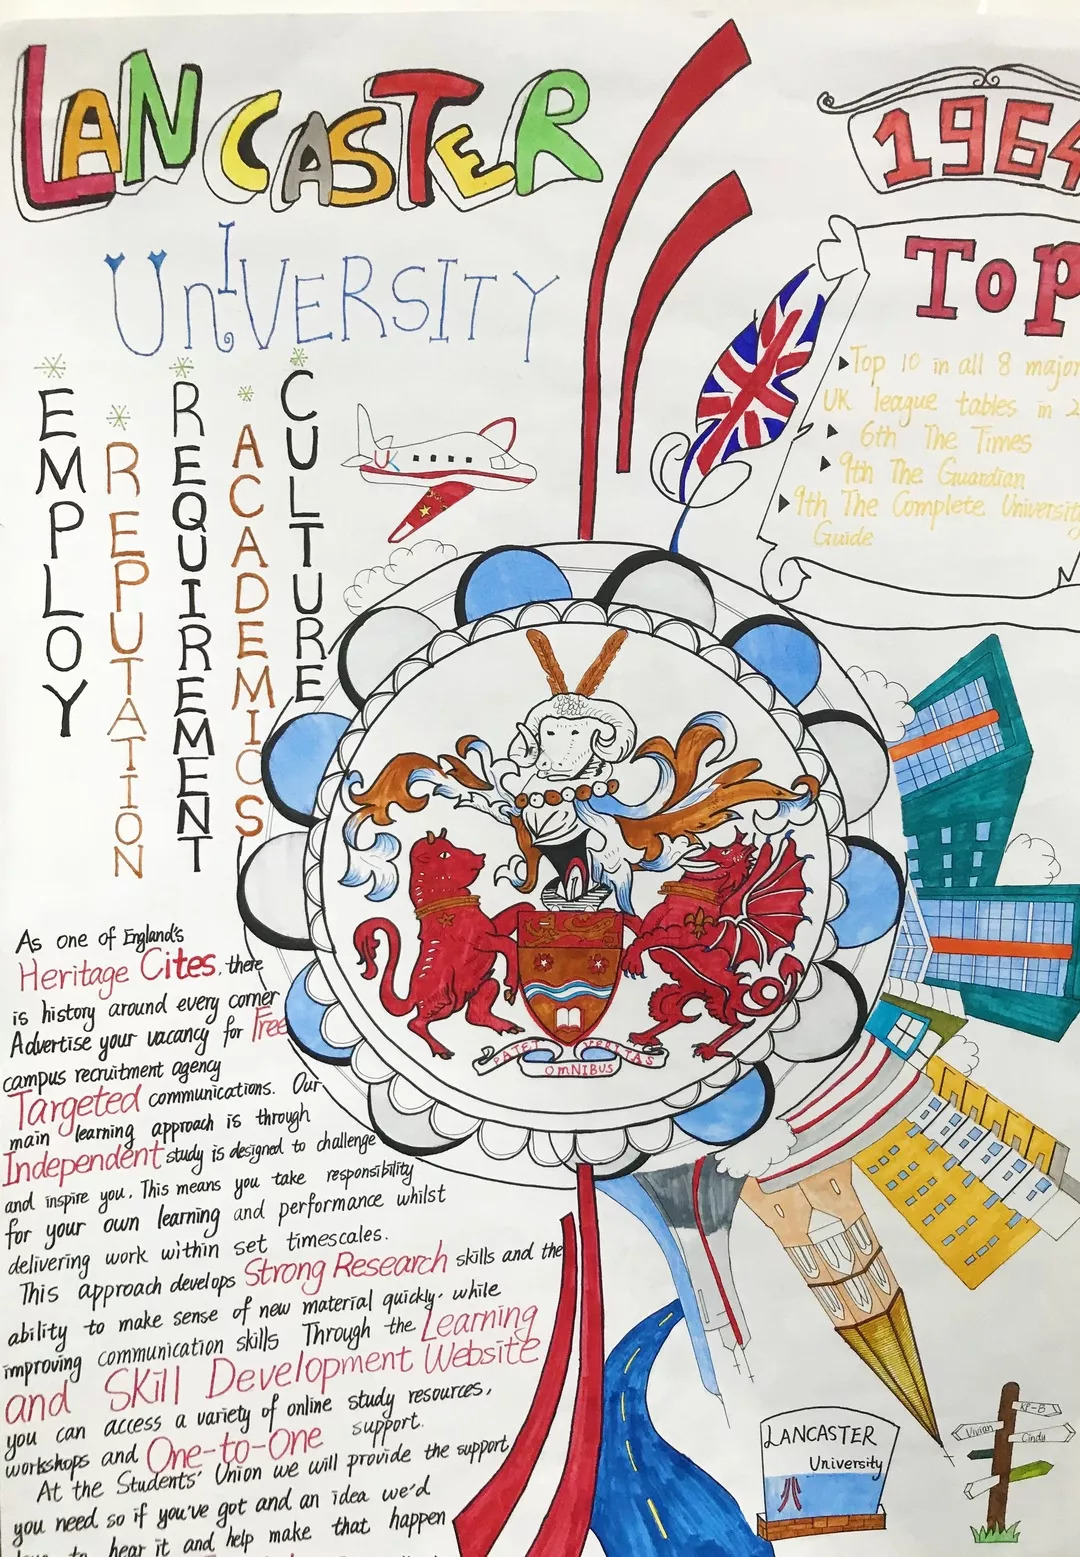 LANCASTER
UnIVERSITY
1964
Top
Top 10 in all 8 major
UK league tables in 2
6th The Times
9th The Guardian
9th The Complete University
Guide
EMPLOY
REPUTATION
REQUIREMENT
ACADEMICS
CULTURE
UK
PATET OMNIBUS VERITAS
As one of England's
Heritage Cites, there
is history around every corner
Advertise your vacancy for Free
campus recruitment agency
Targeted communications. Our
main learning approach is through
Independent study is designed to challenge
and inspire you. This means you take responsibility
for your own learning and performance whilst
delivering work within set timescales.
This approach develops Strong Research skills and the
ability to make sense of new material quickly. while
improving communication skills Through the Learning
and Skill Development Website
you can access a variety of online study resources,
workshops and One-to-One support.
At the Students' Union we will provide the support
you need so if you've got and an idea we'd
to hear it and help make that happen
LANCASTER
University
KP-B
Vivian
Cindy